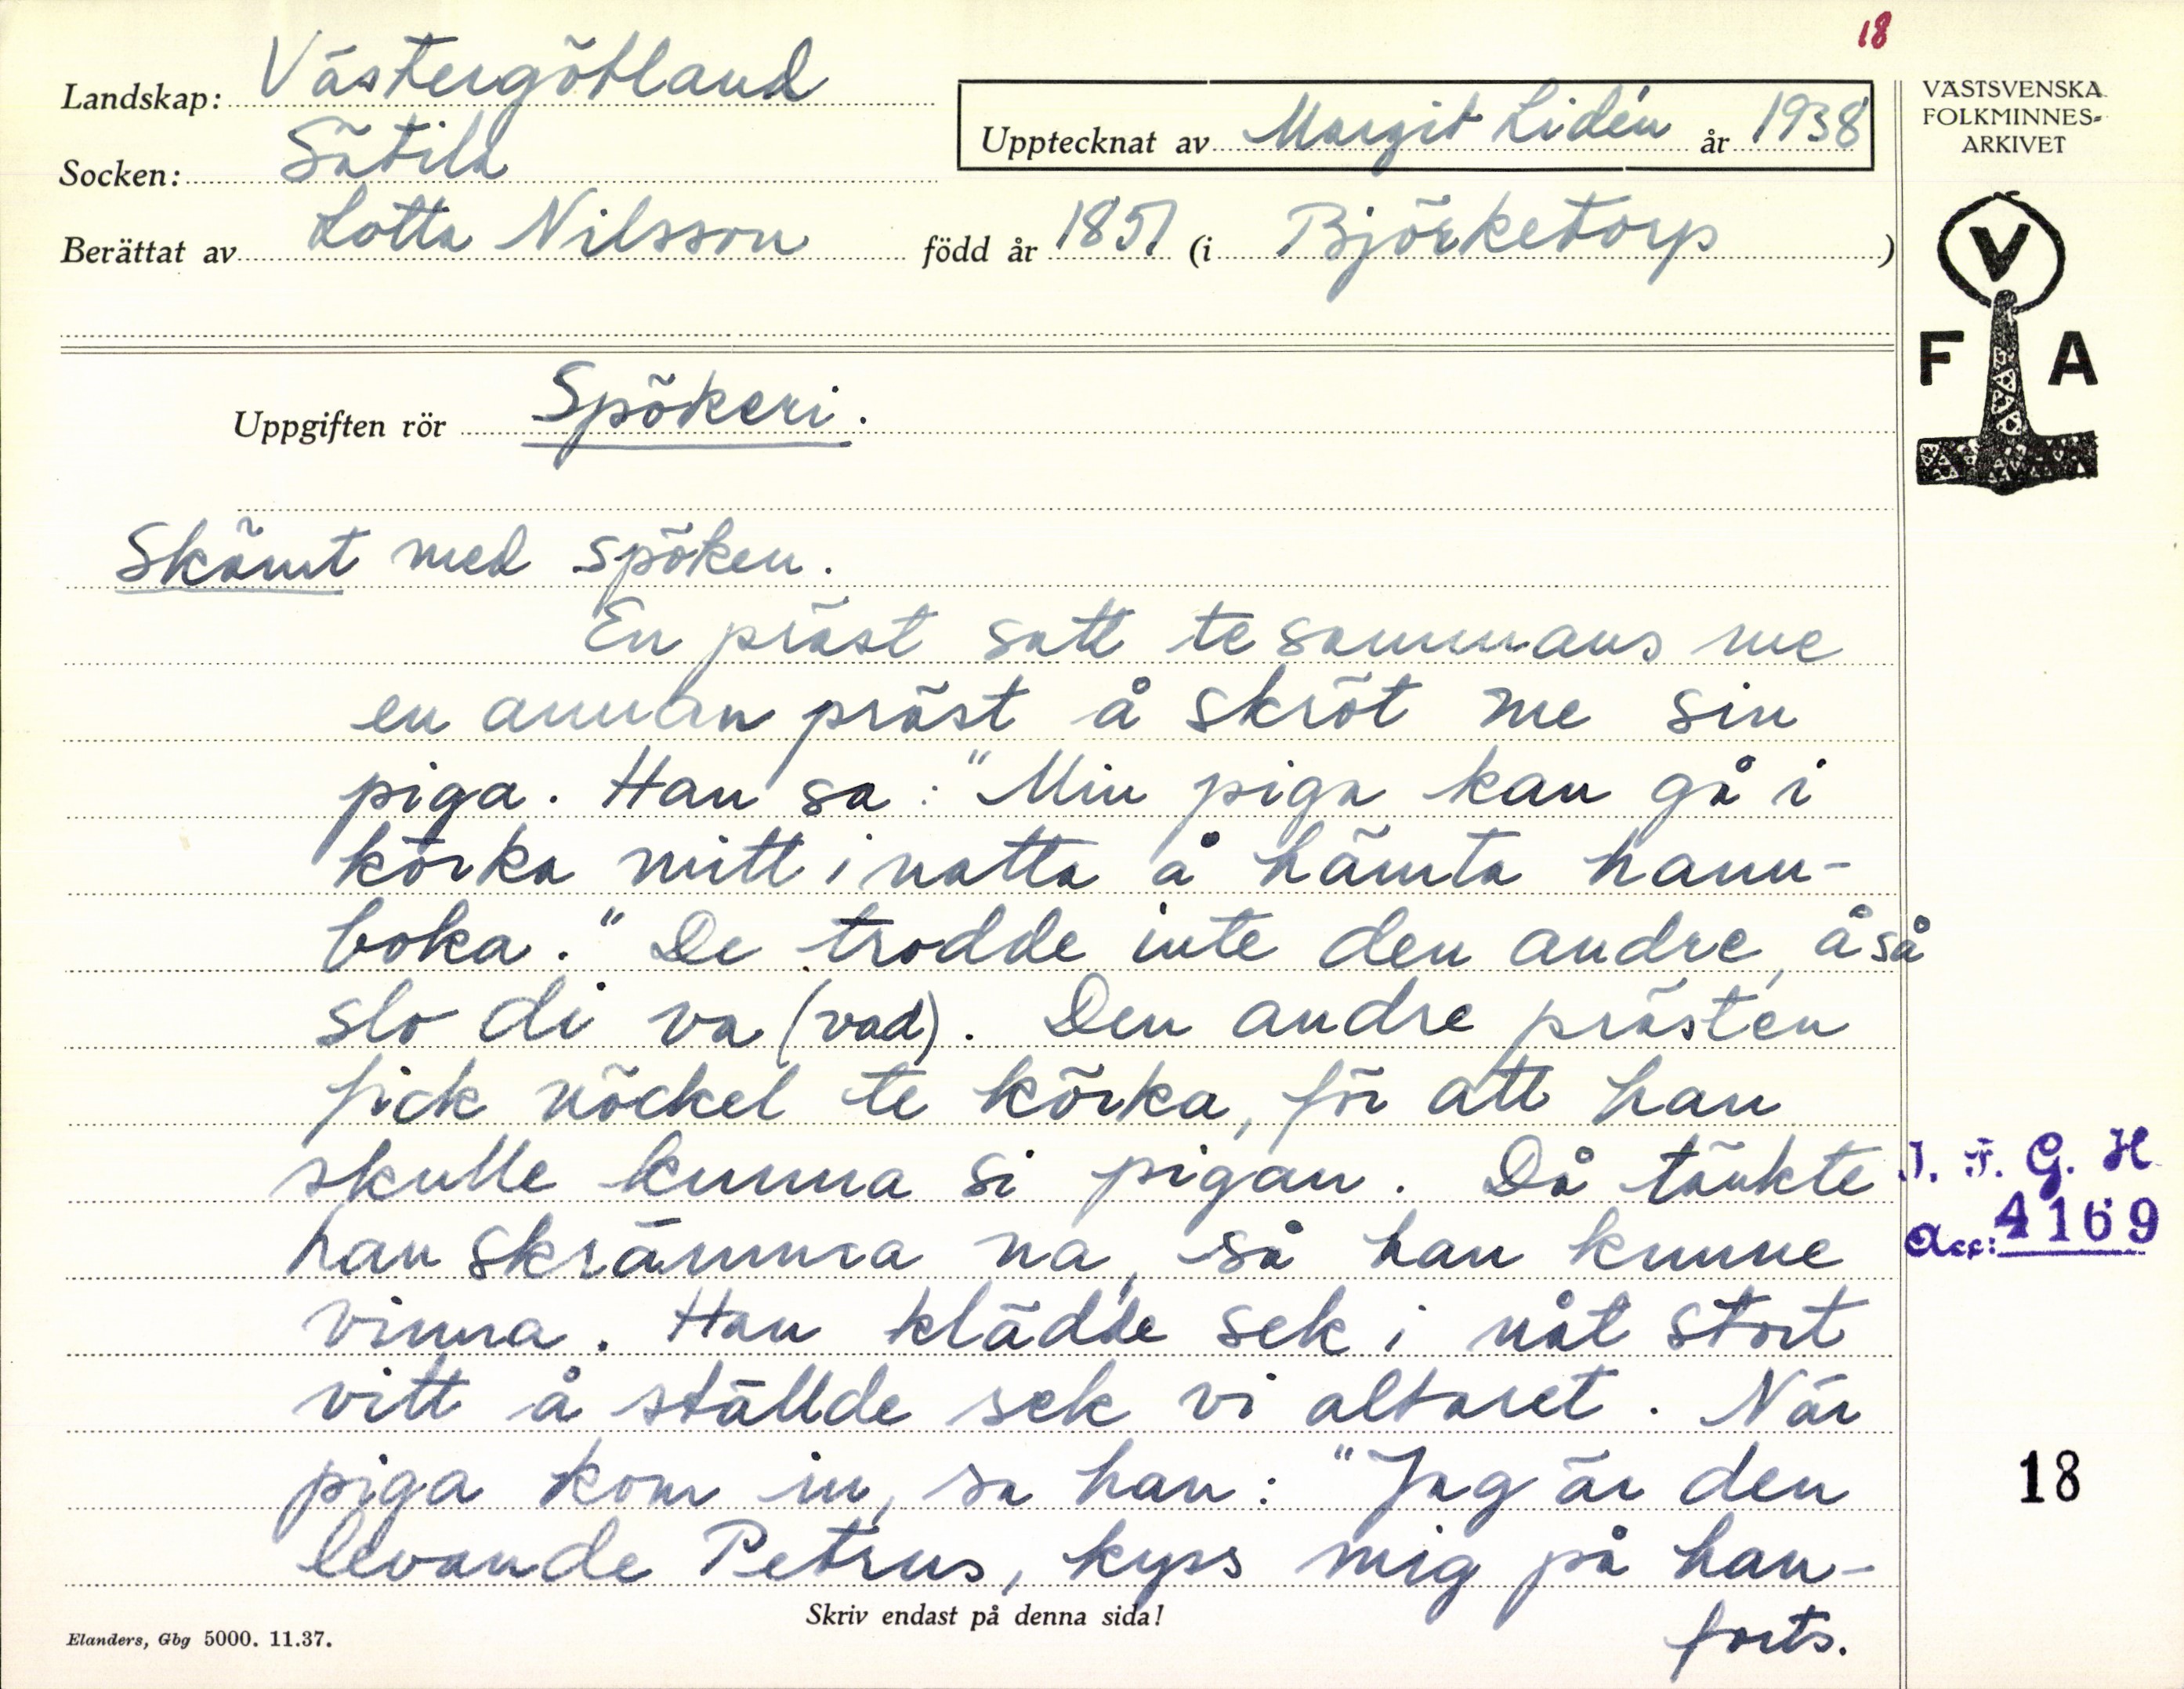 18
Landskap: Västergötland
Upptecknat av Margit Lidén år 1938
VÄSTSVENSKA
FOLKMINNES-
ARKIVET
Socken: Sätila
Berättat av Lotta Nilsson född år 1851 (i Björketorp)
V
F A
Uppgiften rör Spökeri.
Skämt med spöken.
En präst satt te sammans me
en annan präst å skröt me sin
piga. Han sa: "Min piga kan gå i
körka mitt i natta å hämta hann-
boka." De trodde inte den andre, å så
slo di va (vad). Den andre prästen
fick nöckel te körka, för att han
skulle kunna si pigan. Då tänkte
han skrämma na, så han kunne
vinna. Han klädde sek i nåt stort
vitt å ställde sek vi altaret. När
piga kom in, sa han: "Jag är den
levande Petrus, kyss mig på han-
forts.
I. F. G. H.
Acc: 4169
18
Skriv endast på denna sida!
Elanders, Gbg 5000. 11.37.